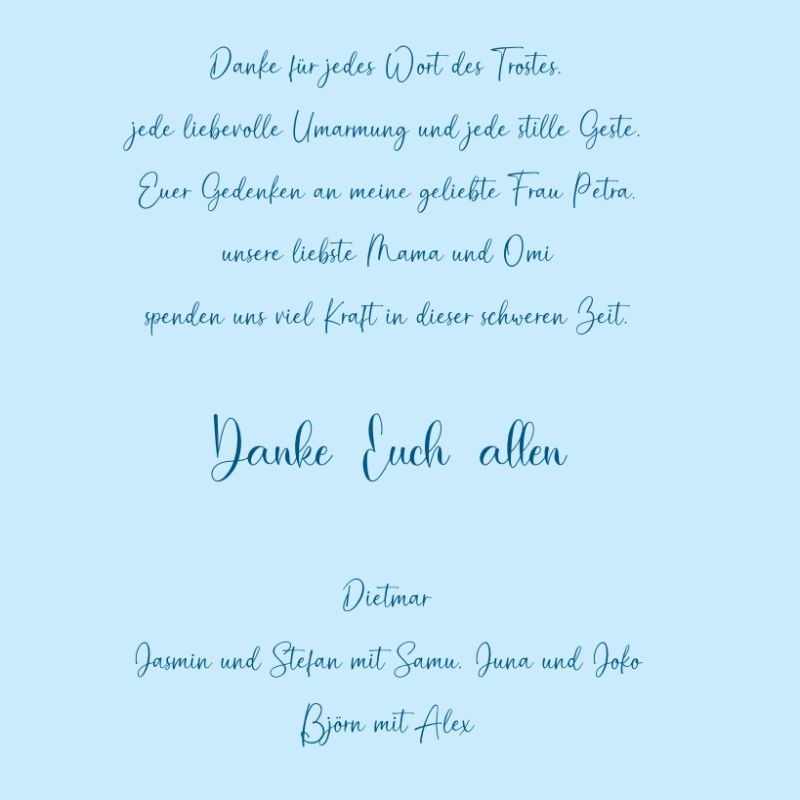 Danke für jedes Wort des Trostes,
jede liebevolle Umarmung und jede stille Geste.
Euer Gedenken an meine geliebte Frau Petra,
unsere liebste Mama und Omi
spenden uns viel Kraft in dieser schweren Zeit.
Danke Euch allen
Dietmar
Jasmin und Stefan mit Samu, Juna und Joko
Björn mit Alex